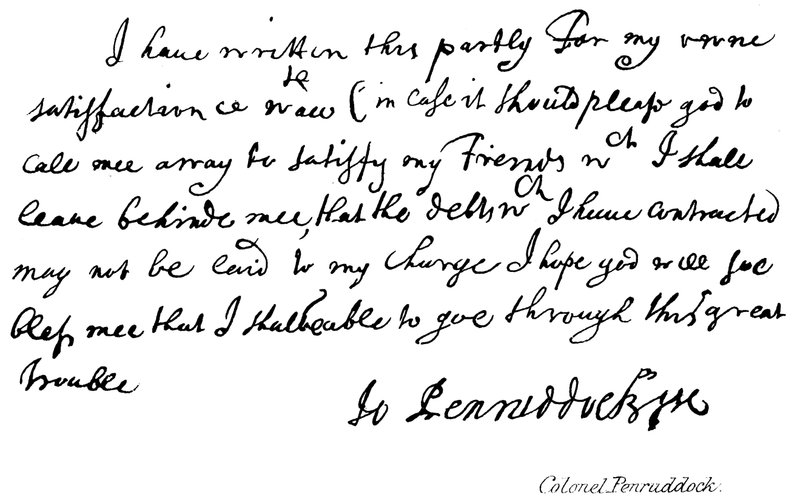 I haue written this partly For my owne
satisfaction & (in case it should please god to
call mee away to satisfy my Friends wch I shall
leaue behinde mee, that the debts wch I haue contracted
may not be laid to my charge I hope god will soe
bless mee that I shall be able to goe through this great
trouble
Jo Penruddock
Colonel Penruddock.